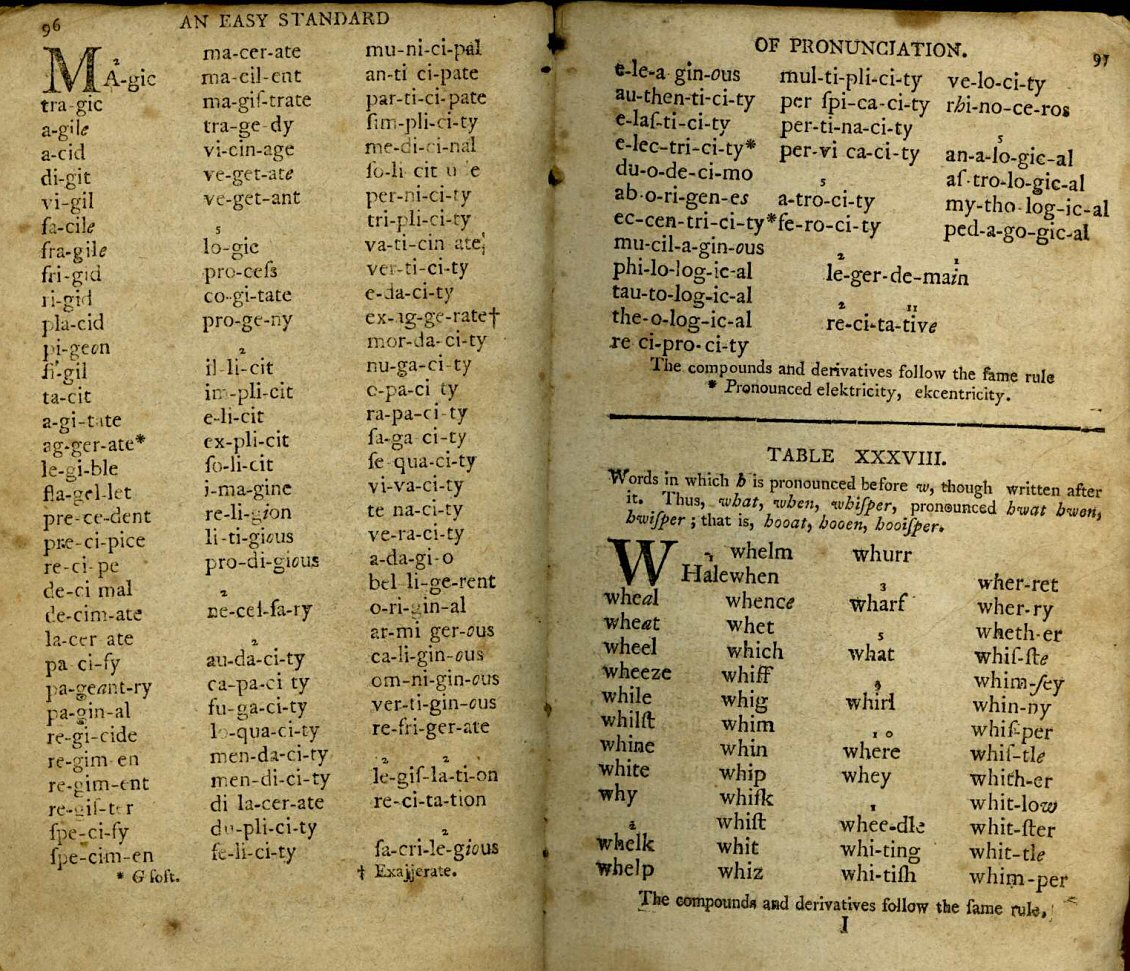 96
AN EASY STANDARD
MA-gic
tra-gic
a-gile
a-cid
di-git
vi-gil
fa-cile
fra-gile
fri-gid
ri-gid
pla-cid
pi-geon
ſi-gil
ta-cit
a-gi-tate
ag-ger-ate*
le-gi-ble
fla-gel-let
pre-ce-dent
pre-ci-pice
re-ci-pe
de-ci mal
de-cim-ate
la-cer ate
pa ci-fy
pa-geant-ry
pa-gin-al
re-gi-cide
re-gim en
re-gim-ent
re-giſ-ter
ſpe-ci-fy
ſpe-cim-en
* G ſoft.
ma-cer-ate
ma-cil-ent
ma-giſ-trate
tra-ge dy
vi-cin-age
ve-get-ate
ve-get-ant
5
lo-gic
pro-ceſs
co-gi-tate
pro-ge-ny
2
il-li-cit
im-pli-cit
e-li-cit
ex-pli-cit
ſo-li-cit
i-ma-gine
re-li-gion
li-ti-gious
pro-di-gious
2
ne-ceſ-ſa-ry
2
au-da-ci-ty
ca-pa-ci ty
fu-ga-ci-ty
lo-qua-ci-ty
men-da-ci-ty
men-di-ci-ty
di la-cer-ate
du-pli-ci-ty
fe-li-ci-ty
mu-ni-ci-pal
an-ti ci-pate
par-ti-ci-pate
ſim-pli-ci-ty
me-di-ci-nal
ſo-li cit u e
per-ni-ci-ty
tri-pli-ci-ty
va-ti-cin ate
ver-ti-ci-ty
e-da-ci-ty
ex-ag-ge-rate†
mor-da-ci-ty
nu-ga-ci-ty
o-pa-ci ty
ra-pa-ci-ty
ſa-ga ci-ty
ſe qua-ci-ty
vi-va-ci-ty
te na-ci-ty
ve-ra-ci-ty
a-da-gi-o
bel li-ge-rent
o-ri-gin-al
ar-mi ger-ous
ca-li-gin-ous
om-ni-gin-ous
ver-ti-gin-ous
re-fri-ger-ate
2 2
le-giſ-la-ti-on
re-ci-ta-tion
2
ſa-cri-le-gious
† Exajjerate.
OF PRONUNCIATION.
97
e-le-a gin-ous
au-then-ti-ci-ty
e-laſ-ti-ci-ty
e-lec-tri-ci-ty*
du-o-de-ci-mo
ab-o-ri-gen-es
ec-cen-tri-ci-ty*
mu-cil-a-gin-ous
phi-lo-log-ic-al
tau-to-log-ic-al
the-o-log-ic-al
re ci-pro-ci-ty
mul-ti-pli-ci-ty
per ſpi-ca-ci-ty
per-ti-na-ci-ty
per-vi ca-ci-ty
5
a-tro-ci-ty
fe-ro-ci-ty
ve-lo-ci-ty
rhi-no-ce-ros
5
an-a-lo-gic-al
aſ-tro-lo-gic-al
my-tho-log-ic-al
ped-a-go-gic-al
2 1
le-ger-de-main
2 11
re-ci-ta-tive
The compounds and derivatives follow the ſame rule
* Pronounced elektricity, ekcentricity.
TABLE XXXVIII.
Words in which h is pronounced before w, though written after
it. Thus, what, when, whiſper, pronounced hwat hwen,
hwiſper; that is, hooat, hooen, hooiſper.
WHale
wheal
wheat
wheel
wheeze
while
whilſt
whine
white
why
2
whelk
whelp
whelm
when
whence
whet
which
whiff
whig
whim
whin
whip
whiſk
whiſt
whit
whiz
whurr
3
wharf
5
what
9
whirl
10
where
whey
1
whee-dle
whi-ting
whi-tiſh
wher-ret
wher-ry
wheth-er
whiſ-tle
whim-ſey
whin-ny
whiſ-per
whiſ-tle
whith-er
whit-low
whit-ſter
whit-tle
whim-per
The compounds and derivatives follow the ſame rule,
I